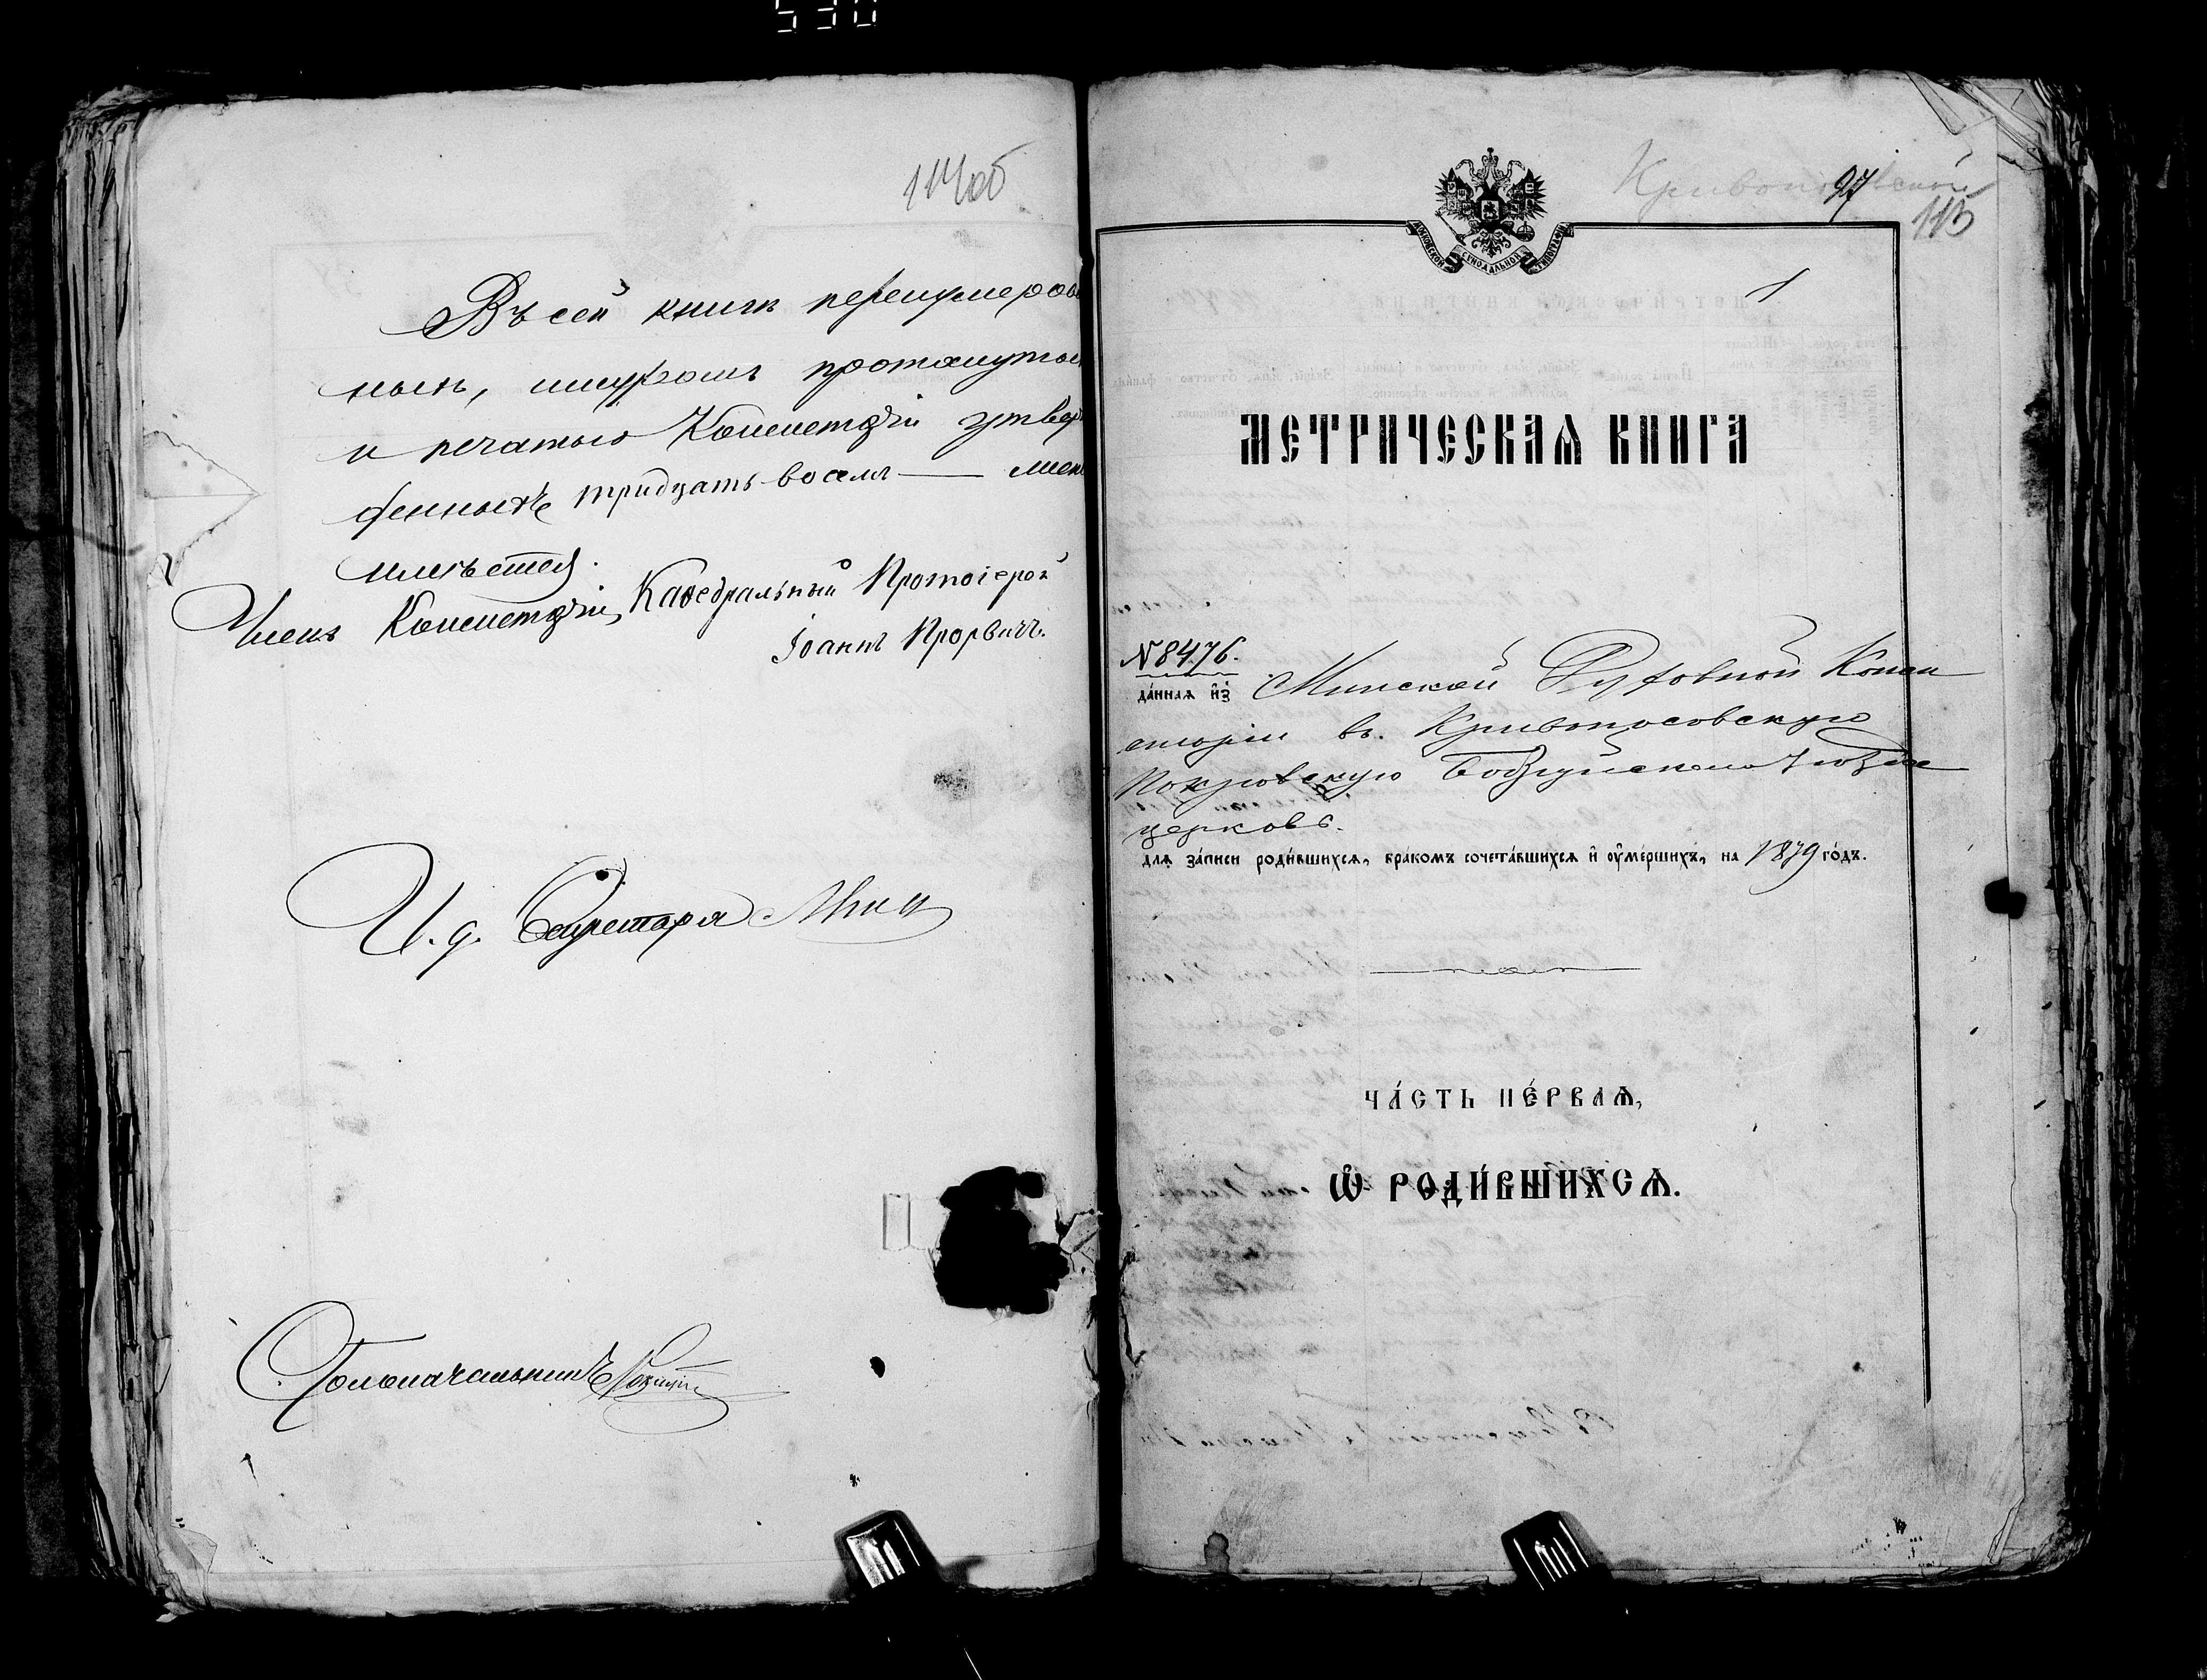 530
114об
Въ сей книгѣ перенумерован
ныхъ, шнуромъ протянутых
и печатью Консисторіи утвер
жденныхъ тридцать восемь — лист
имѣется.
Членъ Консисторіи, Каѳедральный Протоіерей
Іоаннъ Прорвичъ.
И. д. Секретаря
Столоначальникъ
97
115
1
МОСКОВСКОЙ СѴНОДАЛЬНОЙ ТИПОГРАФІИ
МЕТРИЧЕСКАѦ КНИГА
№ 8476.
да́ннаѧ и҆з̾ Минской Духовной Конси
сторіи въ Кривоносовскую
Покровскую Бобруйскаго уѣзда
церковь.
длѧ за́писи роди́вшихсѧ, бра́комъ сочета́вшихсѧ и҆ ᲂу҆ме́ршихъ, на 1879 го́дъ.
ЧА́СТЬ ПЕ́РВАѦ,
Ѽ РОДИ́ВШИХСѦ.